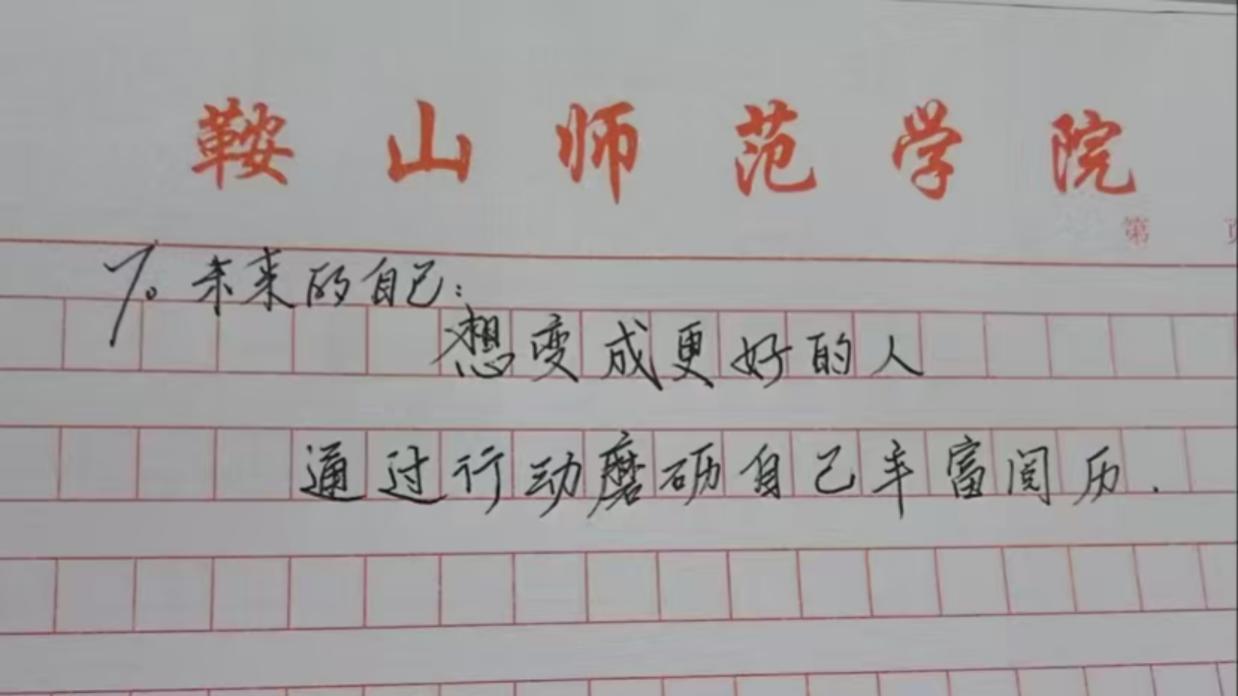 鞍山师范学院
第 页
7。未来的自己：
想变成更好的人
通过行动磨砺自己丰富阅历.